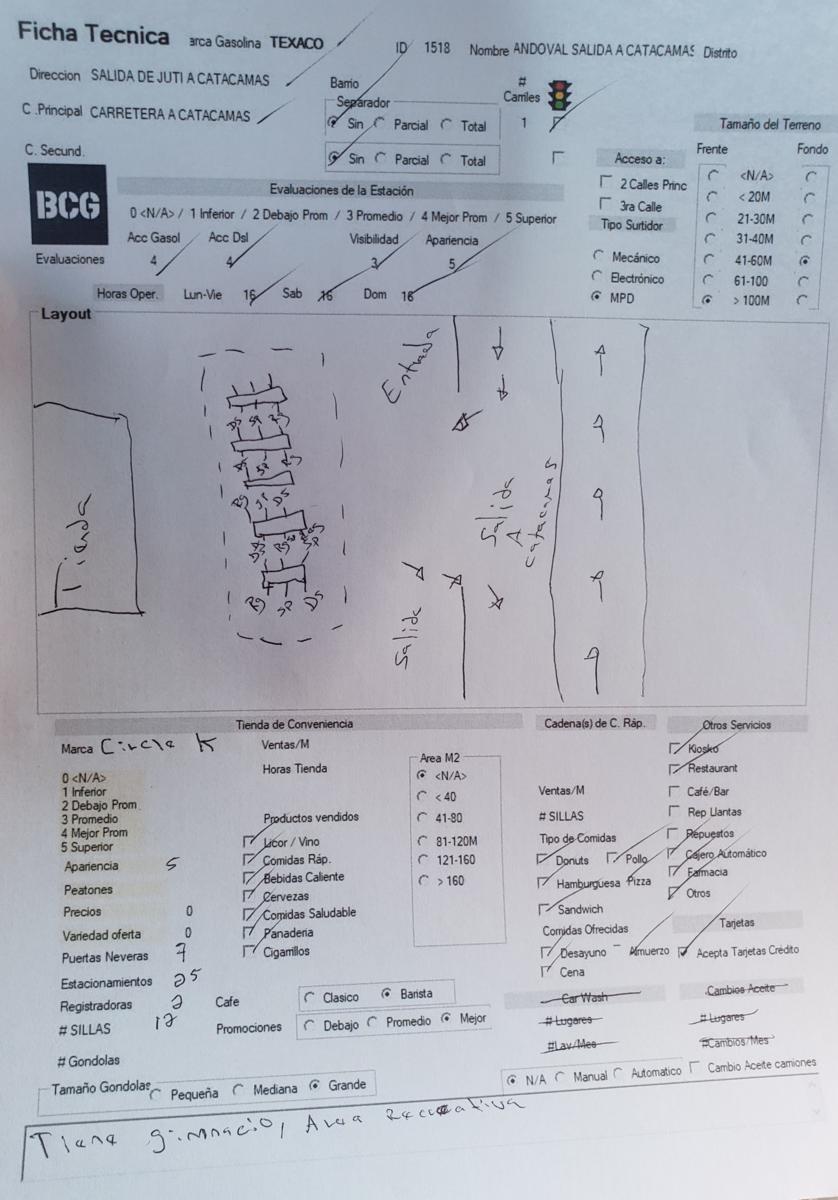 Ficha Tecnica arca Gasolina TEXACO ID 1518 Nombre ANDOVAL SALIDA A CATACAMAS Distrito
Direccion SALIDA DE JUTI A CATACAMAS Barrio # Carriles
C .Principal CARRETERA A CATACAMAS Separador
Sin Parcial Total 1
C. Secund. Sin Parcial Total
Tamaño del Terreno
Frente Fondo
<N/A>
< 20M
21-30M
31-40M
41-60M
61-100
> 100M
Acceso a:
2 Calles Princ
3ra Calle
Tipo Surtidor
Mecánico
Electrónico
MPD
BCG
Evaluaciones de la Estación
0 <N/A> / 1 Inferior / 2 Debajo Prom / 3 Promedio / 4 Mejor Prom / 5 Superior
Acc Gasol Acc Dsl Visibilidad Apariencia
Evaluaciones 4 4 3 5
Horas Oper. Lun-Vie 16 Sab 16 Dom 16
Layout
Tienda
Entrada
Salida
A
Catacamas
Salida
Rg SP DS
Tienda de Conveniencia
Marca Circle K
0 <N/A>
1 Inferior
2 Debajo Prom
3 Promedio
4 Mejor Prom
5 Superior
Apariencia 5
Peatones
Precios 0
Variedad oferta 0
Puertas Neveras 7
Estacionamientos 25
Registradoras 2
# SILLAS 12
# Gondolas
Tamaño Gondolas Pequeña Mediana Grande
Ventas/M
Horas Tienda
Productos vendidos
Licor / Vino
Comidas Ráp.
Bebidas Caliente
Cervezas
Comidas Saludable
Panaderia
Cigarrillos
Cafe Clasico Barista
Promociones Debajo Promedio Mejor
Area M2
<N/A>
< 40
41-80
81-120M
121-160
> 160
Cadena(s) de C. Ráp.
Ventas/M
# SILLAS
Tipo de Comidas
Donuts Pollo
Hamburguesa Pizza
Sandwich
Comidas Ofrecidas
Desayuno Almuerzo
Cena
Otros Servicios
Kiosko
Restaurant
Café/Bar
Rep Llantas
Repuestos
Cajero Automático
Farmacia
Otros
Tarjetas
Acepta Tarjetas Crédito
Car Wash
# Lugares
#Lav/Mes
Cambios Aceite
# Lugares
#Cambios/Mes
N/A Manual Automatico Cambio Aceite camiones
Tiene gimnacio, Area Recreativa